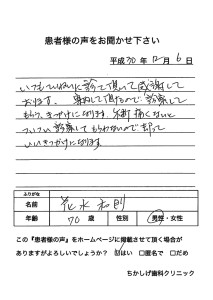 患者様の声をお聞かせ下さい
平成30年12月6日
いつもていねいに診て頂いて感謝して
おります。案内して頂けるので診察して
もらうきっかけになります。不断痛くないと
ついつい診察してもらわないので却って
いいきっかけになります。
ふりがな
名前
年齢 70 歳 性別 男性・女性
この『患者様の声』をホームページに掲載させて頂く場合が
ありますがよろしいでしょうか? はい □匿名で □だめ
ちかしげ歯科クリニック